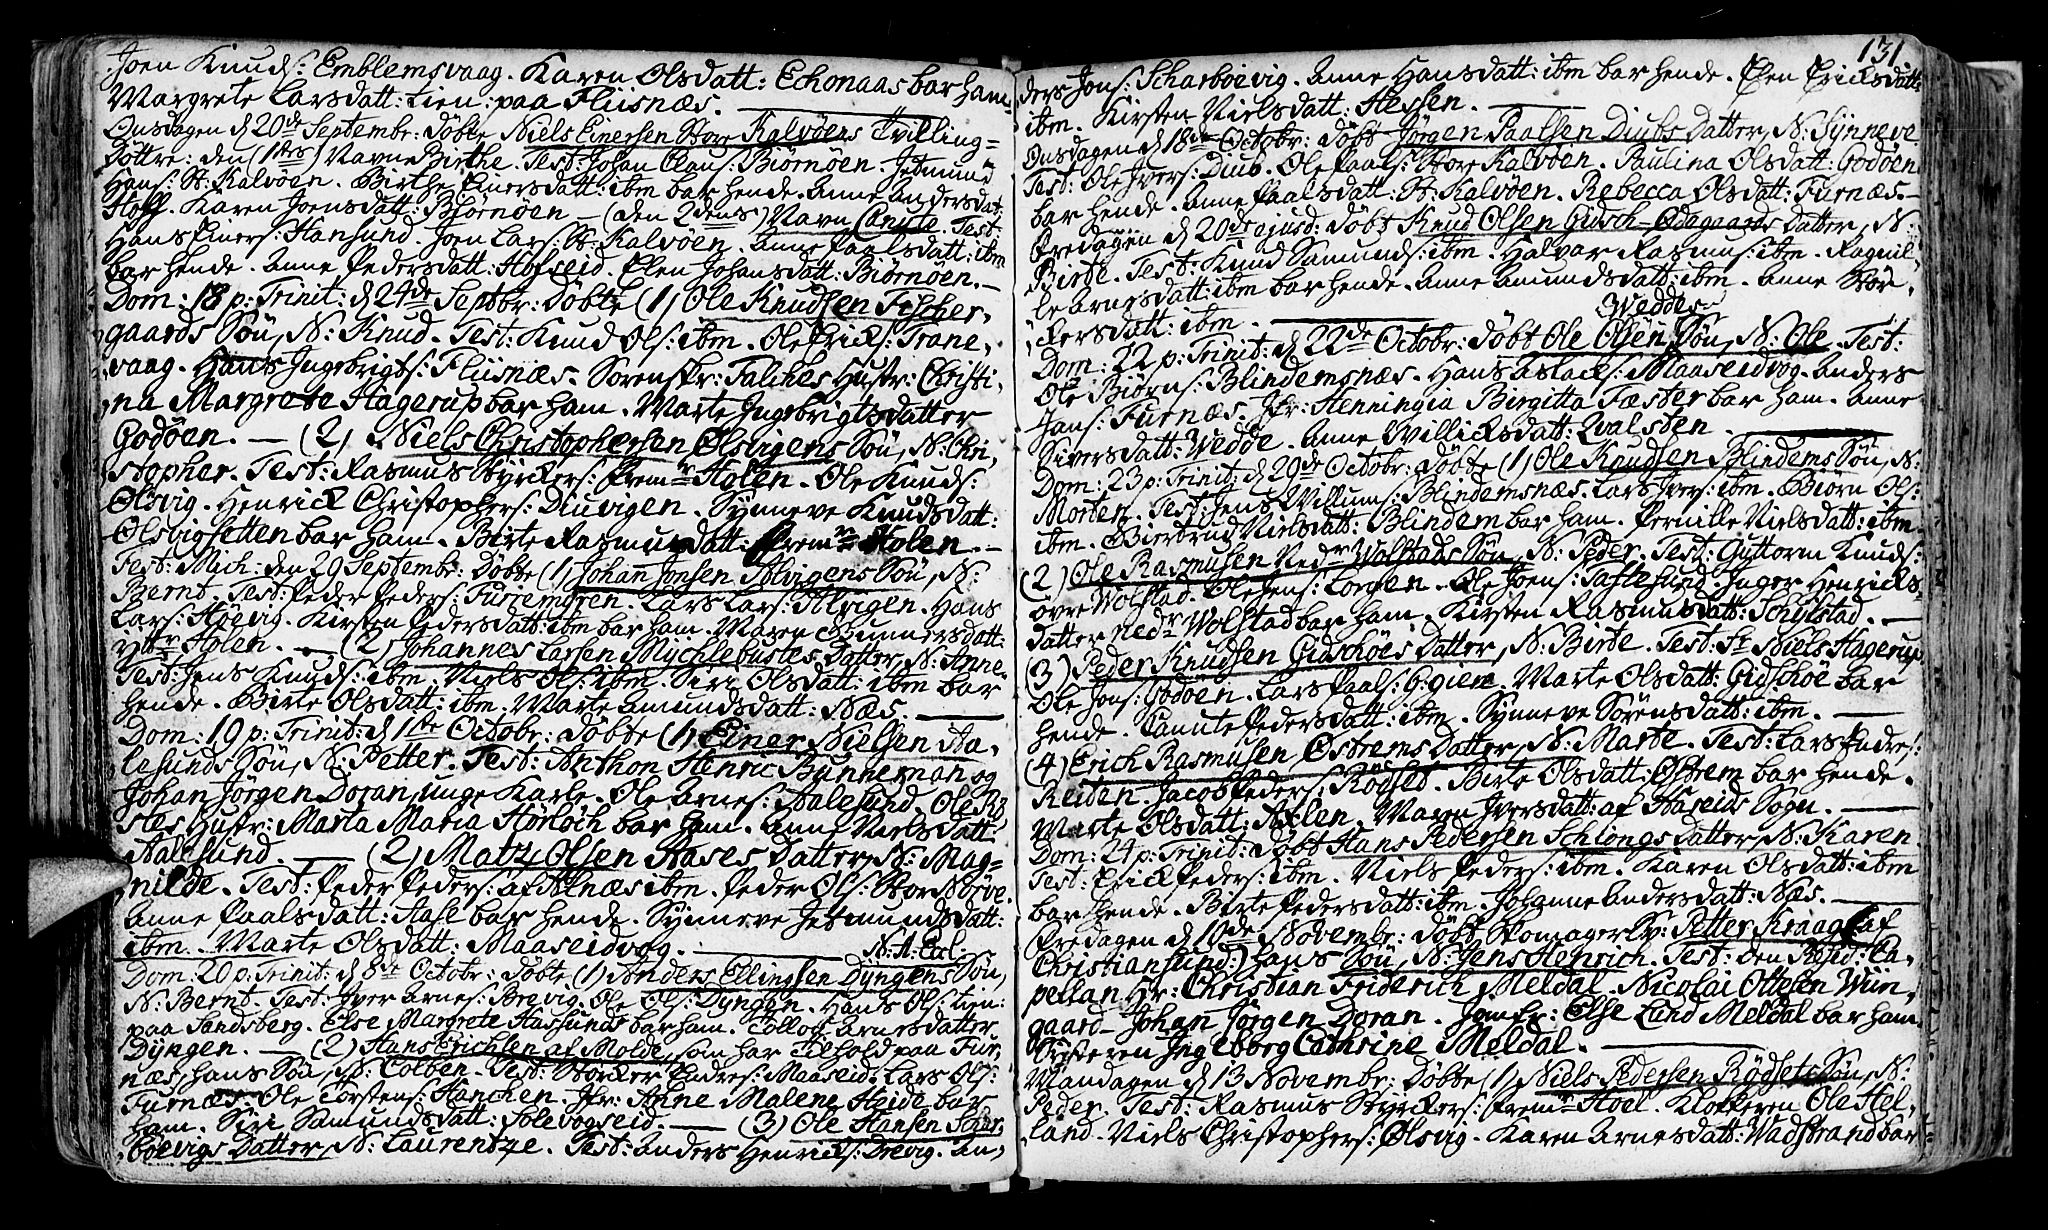 Joen Knuds: Emblemsvaag. Karen Olsdatt: Ekornaas bar ham
Margrete Larsdatt: tien: paa Fliisnæs.
Onsdagen d 20de Septembr: Døbte Niels Einersen Store Kalvøens Tvilling-
Døttre: den (1stes) Navn Birthe. Test: Johan Claus: Biørnøen. Jetmund
Hans: St: Kalvøen. Birthe Einersdatt: ibm bar hende. Anne Andersdat:
Hoff. Karen Joensdatt: Biørnøen - (den 2dens) Navn Canute. Test:
Hans Einers: Hansund. Joen Lars: St: Kalvøen. Anne Paalsdatt: ibm
bar hende. Anne Pedersdatt: Hofseid. Elen Johansdatt: Biørnøen. -
Dom: 18 p: Trinit: d 24de Septbr: Døbte (1) Ole Knudsen Fischer-
gaards Søn, N: Knud. Test: Knud Ols: ibm. Ole Erics: Trane-
vaag. Hans Ingebrigts: Fliisnæs. Sorenskr: Falches Hustr: Christi-
na Margrete Hagerup bar ham. Marte Ingebrigtsdatter
Godøen. - (2) Niels Christophersen Olsvigens Søn, N: Chri-
stopher. Test: Rasmus Styrckers: fremr Holen. Ole Knuds:
Olsvig. Henrick Christophers: Diuvigen. Synneve Knudsdatt:
Olsvigsetten bar ham. Birte Rasmusdatt: fremre Holen. -
Fest: Mich: den 29 Septembr: Døbte (1) Johan Jonsen Solvigens Søn, N:
Bernt. Test: Peder Peders: Furremyren. Lars Lars: Solvigen. Hans
Lars: Høevig. Kirsten Pedersdatt: ibm bar ham. Maren Gunnersdatt:
yttr Holen. - (2) Johannes Larsen Mychlebustes Datter, N: Anne
Test: Jens Knuds: ibm. Niels Ols: ibm. Siri Olsdatt: ibm bar
hende. Birte Olsdatt: ibm. Marte Amundsdatt: Næs.
Dom: 19 p: Trinit: d 1ste Octobr: Døbte (1) Einer Nielsen Aa-
lesunds Søn, N: Petter. Test: Anthon Henric Bunneman og
Johan Jörgen Doran, unge Karle. Ole Arnes: Aalesund. Ole
stes Hustr: Marta Maria Hörloch bar ham. Anne Nielsdatt:
Aalesund. - (2) Matz Olsen Aases Datter, N: Mag-
nilde. Test: Peder Peders: af Alnæs ibm. Peder Ols: Stor Nörve.
Anne Paalsdatt: Aase bar hende. Synneve Jetmundsdatt:
ibm. Marte Olsdatt: Maaseidvog. N. A. Ecl:
Dom: 20 p: Trinit: d 8de Octobr: Døbte (1) Anders Edlingsen Dyngens Søn,
N: Bernt. Test: Iver Arnes: Brevig. Ole Ols: Dyngen. Hans Ols: tien:
paa Sandsberg. Else Margrete Haslunds bar ham. Tollog Arnesdatter
Dyngen. - (2) Hans Erichsen af Molde, som har Tilhold paa Fur-
næs, hans Søn, N: Colben. Test: Storker Endres: Maaseid. Lars Ols:
Furnæs. Ole Torstens: Hanchen. Jfr: Anne Malene Heide bar
ham. Siri Samundsdatt: Solevogseid. - (3) Ole Hansen Schar-
boevigs Datter, N: Laurentze. Test: Anders Henricks: Brevig. An-
131.
ders Jons: Scharboevig. Anne Hansdatt: ibm bar hende. Elen Ericksdatt:
ibm. Kirsten Nielsdatt: Hessen.
Onsdagen d 18de Octobr: Døbt Jørgen Paalsen Diubs Datter, N: Synneve
Test: Ole Ivers: Diub. Ole Paals: Store Kalvøen. Paulina Olsdatt: Godøen
bar hende. Anne Paalsdatt: St: Kalvøen. Rebecca Olsdatt: Furnæs. -
Fredagen d 20de ejusd: Døbt Knud Olsen Gidsch-Ødegaards Datter, N:
Birte. Test: Knud Samunds: ibm. Halvar Rasmus: ibm. Ragnil-
le Arnesdatt: ibm bar hende. Anne Amundsdatt: ibm. Anne Stör-
kersdatt: ibm.
Weddes
Dom: 22 p: Trinit: d 22de Octobr: Døbt Ole Olsen Søn, N: Ole. Test:
Ole Biørns: Blindemsnæs. Hans Aslacks: Maaseidvog. Anders
Jans: Furnæs. Jfr: Henningia Birgitta Fæster bar ham. Anne
Siversdatt: Wedde. Anne Willicksdatt: Qvalsten.
Dom: 23 p: Trinit: d 29de Octobr: Døbte (1) Ole Knudsen Blindems Søn, N:
Morten. Test: Jens Willums: Blindemsnæs. Lars Ivers: ibm. Biørn Ols:
ibm. Giertrud Nielsdatt: Blindem bar ham. Pernille Nielsdatt: ibm.
(2) Ole Rasmusen Nedr Wolstads Søn, N: Peder. Test: Guttorm Knuds:
øvre Wolstad. Ole Jens: Lorgen. Ole Joens: Taftesund. Inger Henricks-
datter nedr Wolstad bar ham. Kirsten Rasmusdatt: Schylstad. -
(3) Peder Knudsen Gidschöes Datter, N: Birte. Test: Sr Niels Hagerup
Ole Jons: Godøen. Lars Paals: Giern. Marte Olsdatt: Gidschöe bar
hende. Canute Pedersdatt: ibm. Synneve Sörensdatt: ibm.
(4) Erich Rasmusen Østrems Datter, N: Marte. Test: Lars Endres:
Reiten. Jacob Peders: Rödset. Birte Olsdatt: Østrem bar hende.
Marte Olsdatt: Axlen. Maren Iversdatt: af Hareids Sogn.
Dom: 24 p: Trinit: Døbt Hans Pedersen Schlongs Datter, N: Karen
Test: Erick Peders: ibm. Niels Peders: ibm. Karen Olsdatt: ibm
bar hende. Birte Pedersdatt: ibm. Johanne Andersdatt: Næs.
Fredagen d 10de Novembr: Døbt Skomager Sv: Petter Kraag (af
Christiansund) hans Søn, N: Jens Henrich. Test: Den Resid: Ca-
pellan Hr: Christian Friderich Meldal. Nicolai Ottesen Wiin-
gaard. Johan Jörgen Doran. Jomfr: Else Lund Meldal bar ham
Søsteren Ingeborg Cathrine Meldal.
Mandagen d 13 Novembr: Døbte (1) Niels Pedersen Rödsets Søn, N:
Peder. Test: Rasmus Styrckers: fremr Hoel. Klokkeren Ole Hel-
land. Niels Christophers: Ølsvig. Karen Arnesdatt: Wadstrand bar